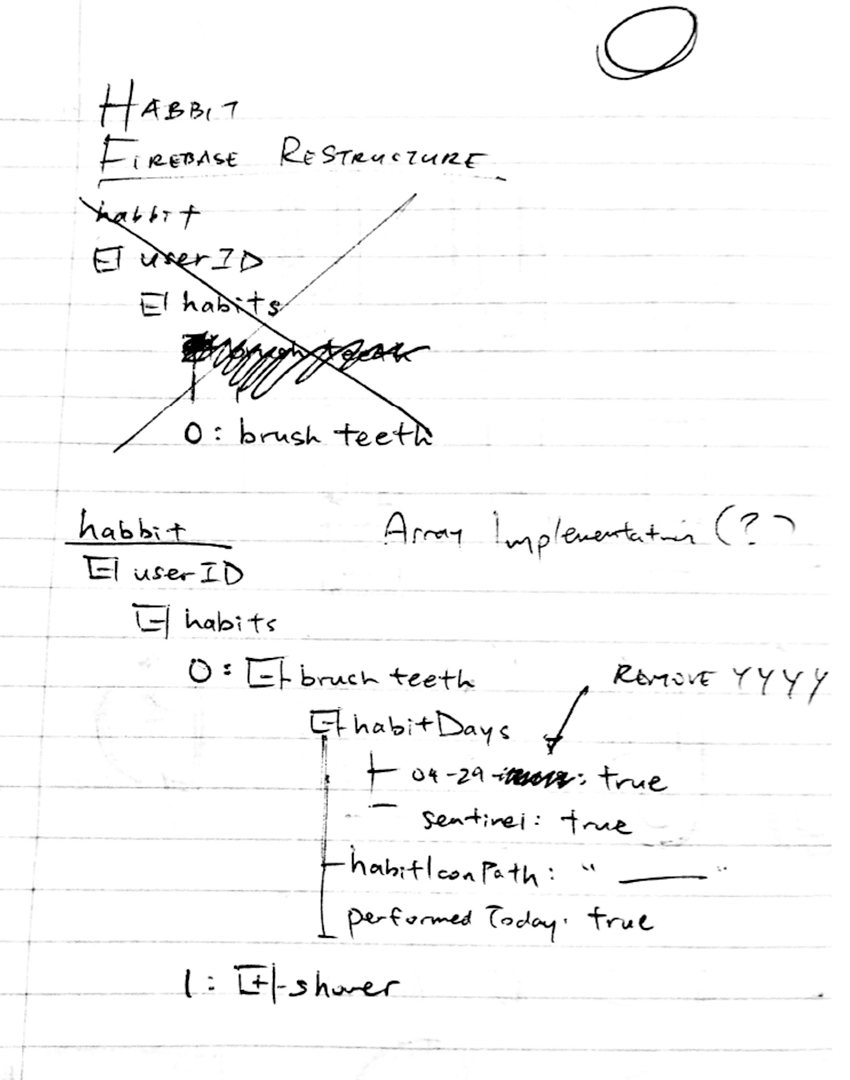 HABBIT
FIREBASE RESTRUCTURE
habbit
userID
habits
0: brush teeth
habbit
Array Implementation (?)
userID
habits
0: brush teeth
REMOVE YYYY
habitDays
04-29-: true
sentinel: true
habitIconPath: " ______ "
performed Today: true
1: shower